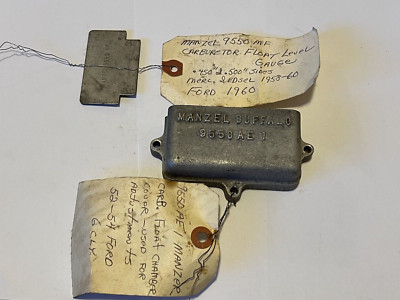 MANZEL 9550 AE
CARBURETOR FLOAT LEVEL
GAUGE
.450" & .500" SIDES
MERC. & EDSEL 1958-60
FORD 1960
MANZEL BUFFALO
9550AE 1
9550 AE1 MANZEL
CARB. FLOAT CHAMBER
COVER - USED FOR
ADJUSTMENTS
52-54 FORD
6 CLY